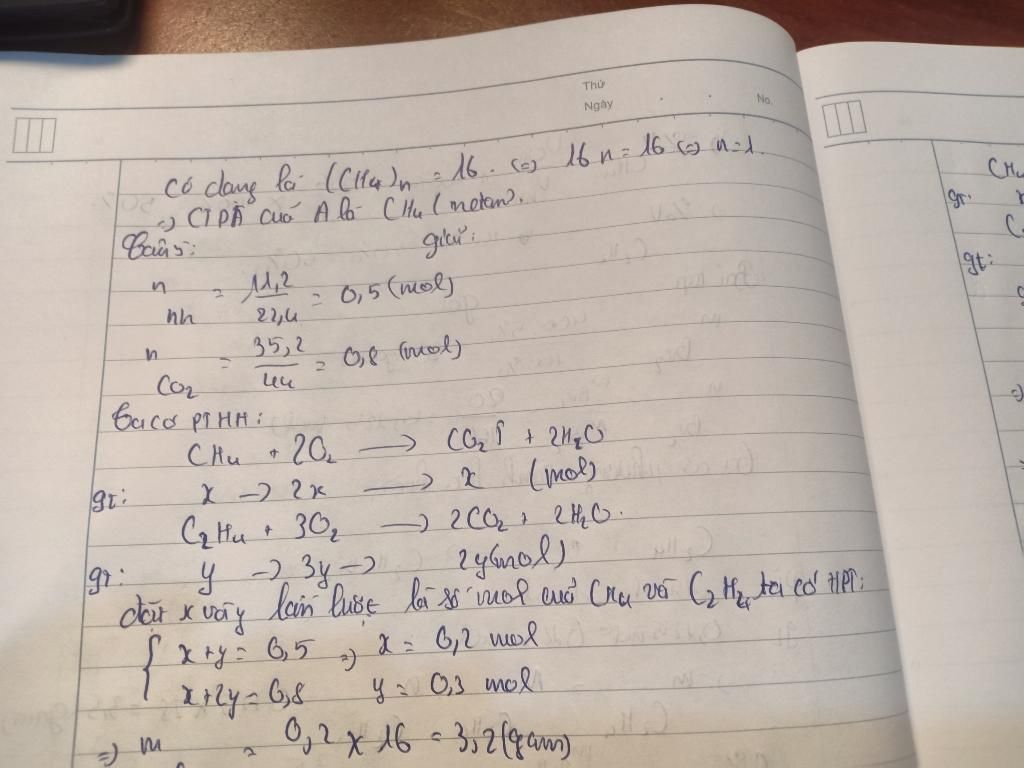 Thứ
Ngày . . No.
Có dạng là (CH4)n = 16. (=) 16n = 16 (=) n = 1.
=) CTPT của A là CH4 (metan).
Bài 5: giải:
n nh = 11,2/22,4 = 0,5 (mol)
n CO2 = 35,2/44 = 0,8 (mol)
Ta có PTHH:
CH4 + 2O2 → CO2↑ + 2H2O
gt: x → 2x → x (mol)
C2H4 + 3O2 → 2CO2 + 2H2O.
gt: y → 3y → 2y (mol)
đặt x và y lần lượt là số mol của CH4 và C2H4 ta có HPT:
{ x+y = 0,5 =) x = 0,2 mol
x+2y = 0,8 y = 0,3 mol
=) m = 0,2 x 16 = 3,2 (gam)
CH4
gt:
C
gt:
=)